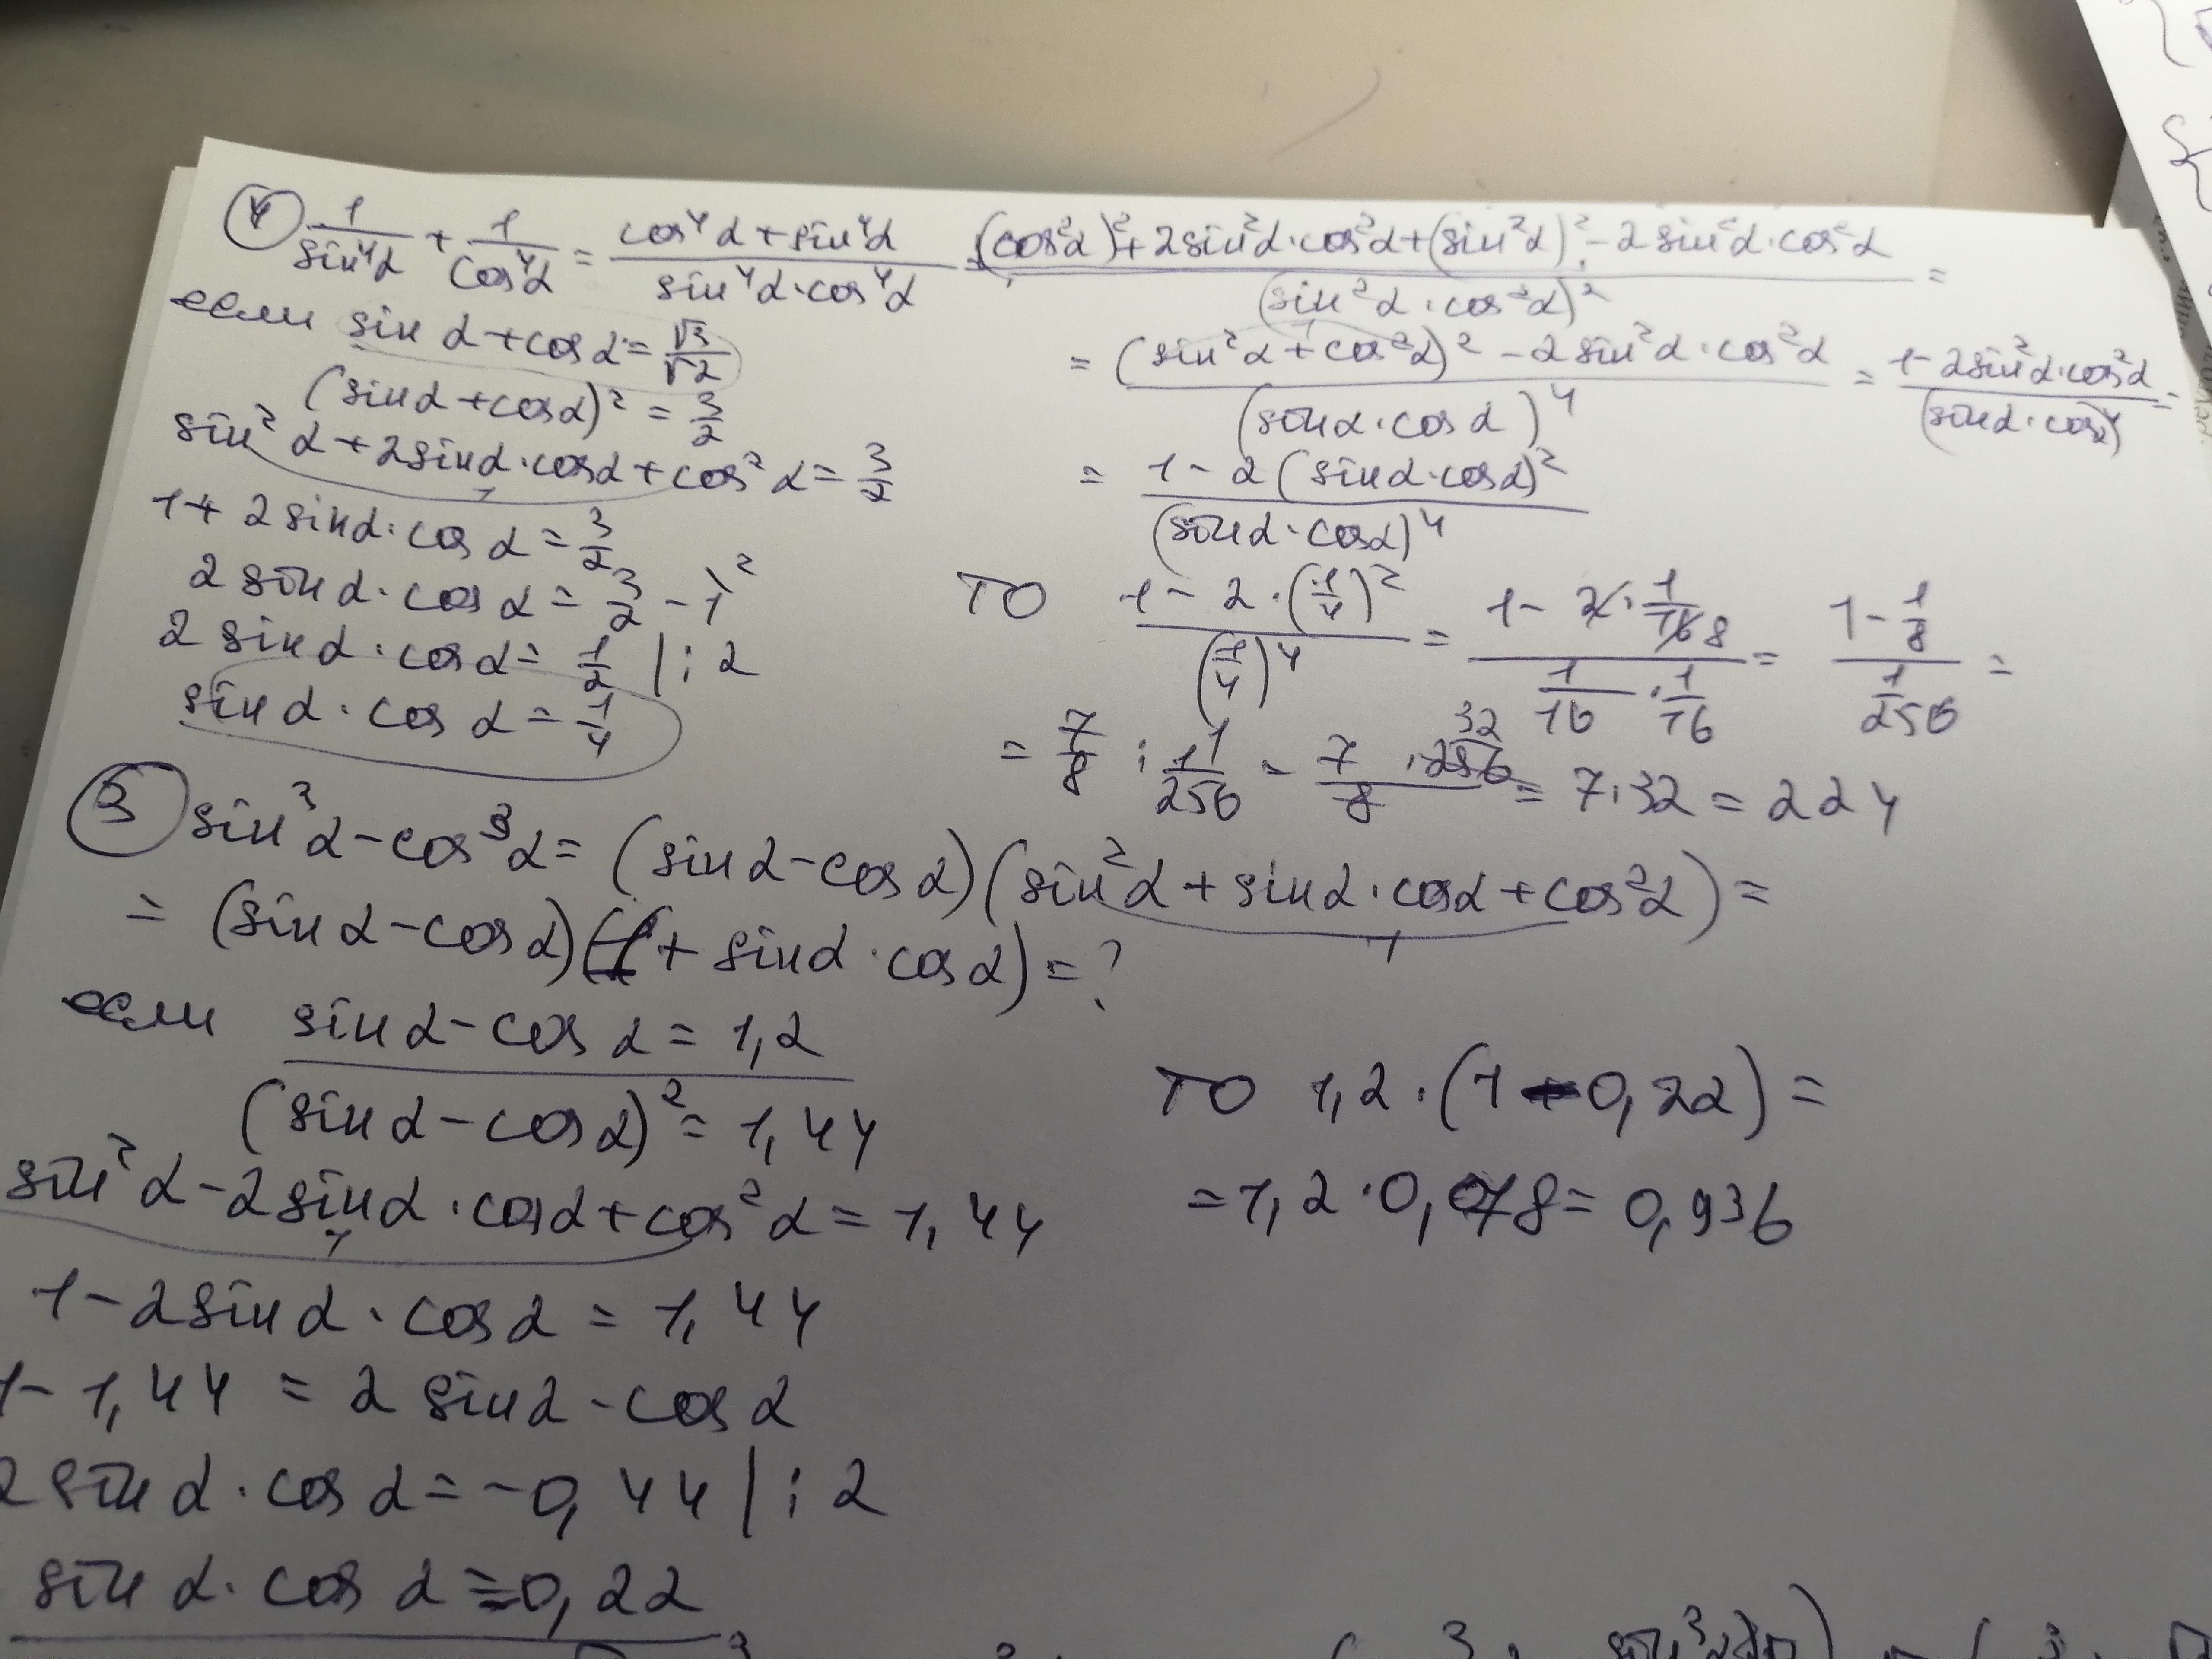 ④ 1/sin⁴α + 1/cos⁴α = (cos⁴α + sin⁴α)/(sin⁴α · cos⁴α) = ((cos²α)² + 2sin²α · cos²α + (sin²α)² - 2sin²α · cos²α)/(sin²α · cos²α)² =
= ((sin²α + cos²α)² - 2sin²α · cos²α)/(sinα · cosα)⁴ = (1 - 2sin²α · cos²α)/(sinα · cosα)⁴ =
= (1 - 2(sinα · cosα)²)/(sinα · cosα)⁴
если sin α + cos α = √3/√2
(sinα + cosα)² = 3/2
sin²α + 2sinα · cosα + cos²α = 3/2
1
1 + 2sinα · cos α = 3/2
2 sin α · cos α = 3/2 - 1
2 sin α · cos α = 1/2 | : 2
sin α · cos α = 1/4
то (1 - 2 · (1/4)²)/(1/4)⁴ = (1 - 2 · 1/16 8)/(1/16 · 1/16) = (1 - 1/8)/(1/256) =
= 7/8 : 1/256 = (7 · 256 32)/8 = 7 · 32 = 224
③ sin³α - cos³α = (sin α - cos α)(sin²α + sinα · cosα + cos²α) =
1
= (sin α - cos α)(1 + sinα · cos α) = ?
если sin α - cos α = 1,2
(sin α - cos α)² = 1,44
sin²α - 2sinα · cosα + cos²α = 1,44
1
1 - 2sin α · cos α = 1,44
1 - 1,44 = 2 sin α · cos α
2 sin α · cos α = -0,44 | : 2
sin α · cos α = -0,22
то 1,2 · (1 - 0,22) =
= 1,2 · 0,78 = 0,936